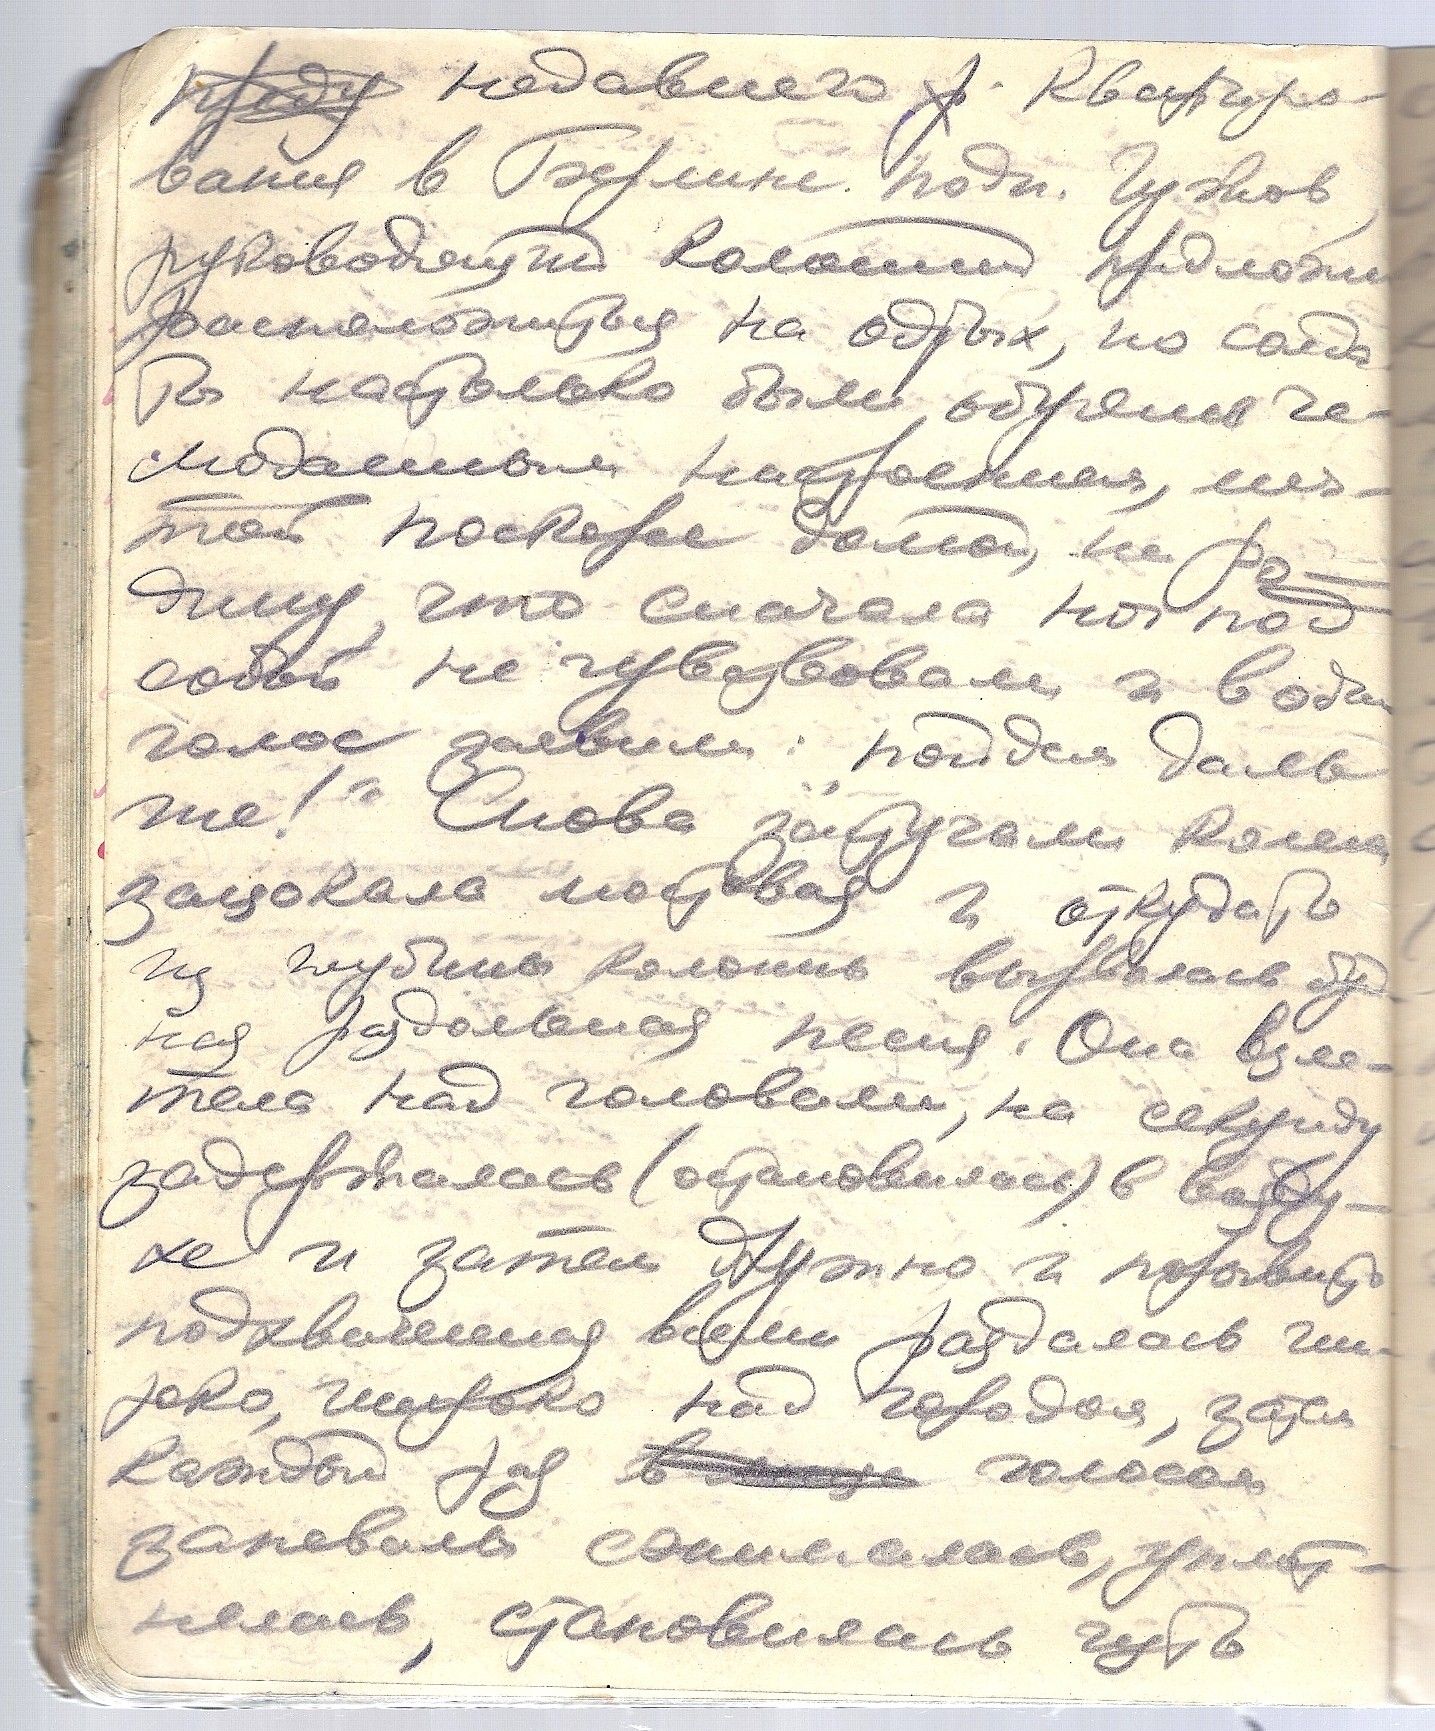 недавнего р. Квартиро-
вания в Берлине. подп. Чужов,
руководящий колонной предложил
расположиться на отдых, но солда-
ты настолько были обуяны че-
моданным настроением, меч-
той поскорее домой, на Ро-
дину, что сначала ног под
собой не чувствовали и в один
голос заявили: „пойдем даль
ше!" Снова застучали колеса
зацокала мостовая и откуда то
из глубины колонны вырвалась буй
ная раздольная песня. Она взле-
тела над головами, на секунду
задержалась (остановилась) в возду-
хе и затем дружно и
подхваченная всеми раздалась ши-
роко, широко над городом, затем
каждый раз голосом
запевалы сжималась, уплот-
нялась, становилась чуть